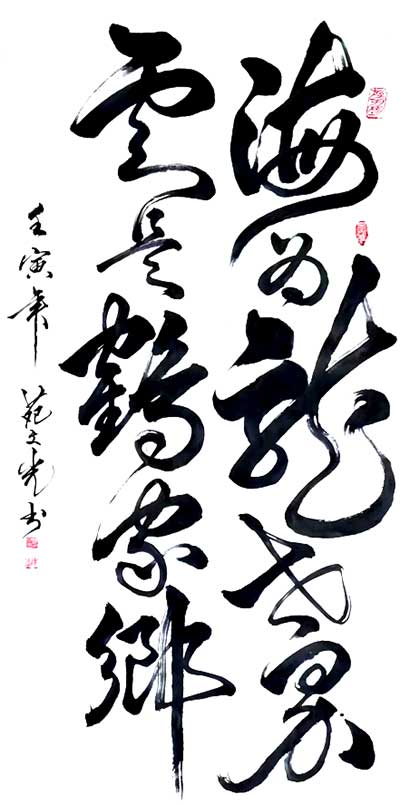 海为龙世界
云是鹤家乡
壬寅年 范文光书